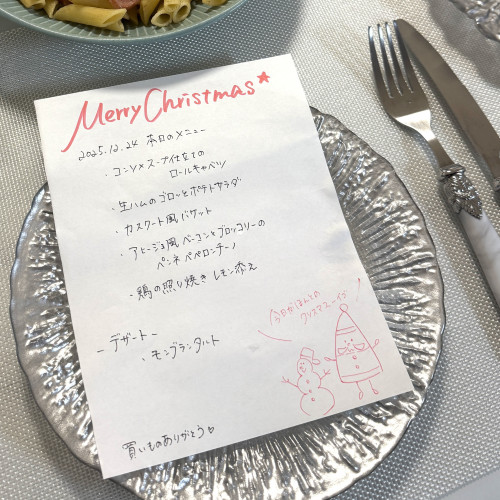 Merry Christmas★
2025.12.24 本日のメニュー
・コンソメスープ仕立ての
ロールキャベツ
・生ハムのゴロッとポテトサラダ
・カスクート風バゲット
・アヒージョ風 ベーコンとブロッコリーの
ペンネ ペペロンチーノ
・鶏の照り焼き レモン添え
ーデザートー
・モンブランタルト
今日がほんとの
クリスマスーイヴ!
買いものありがとう♡